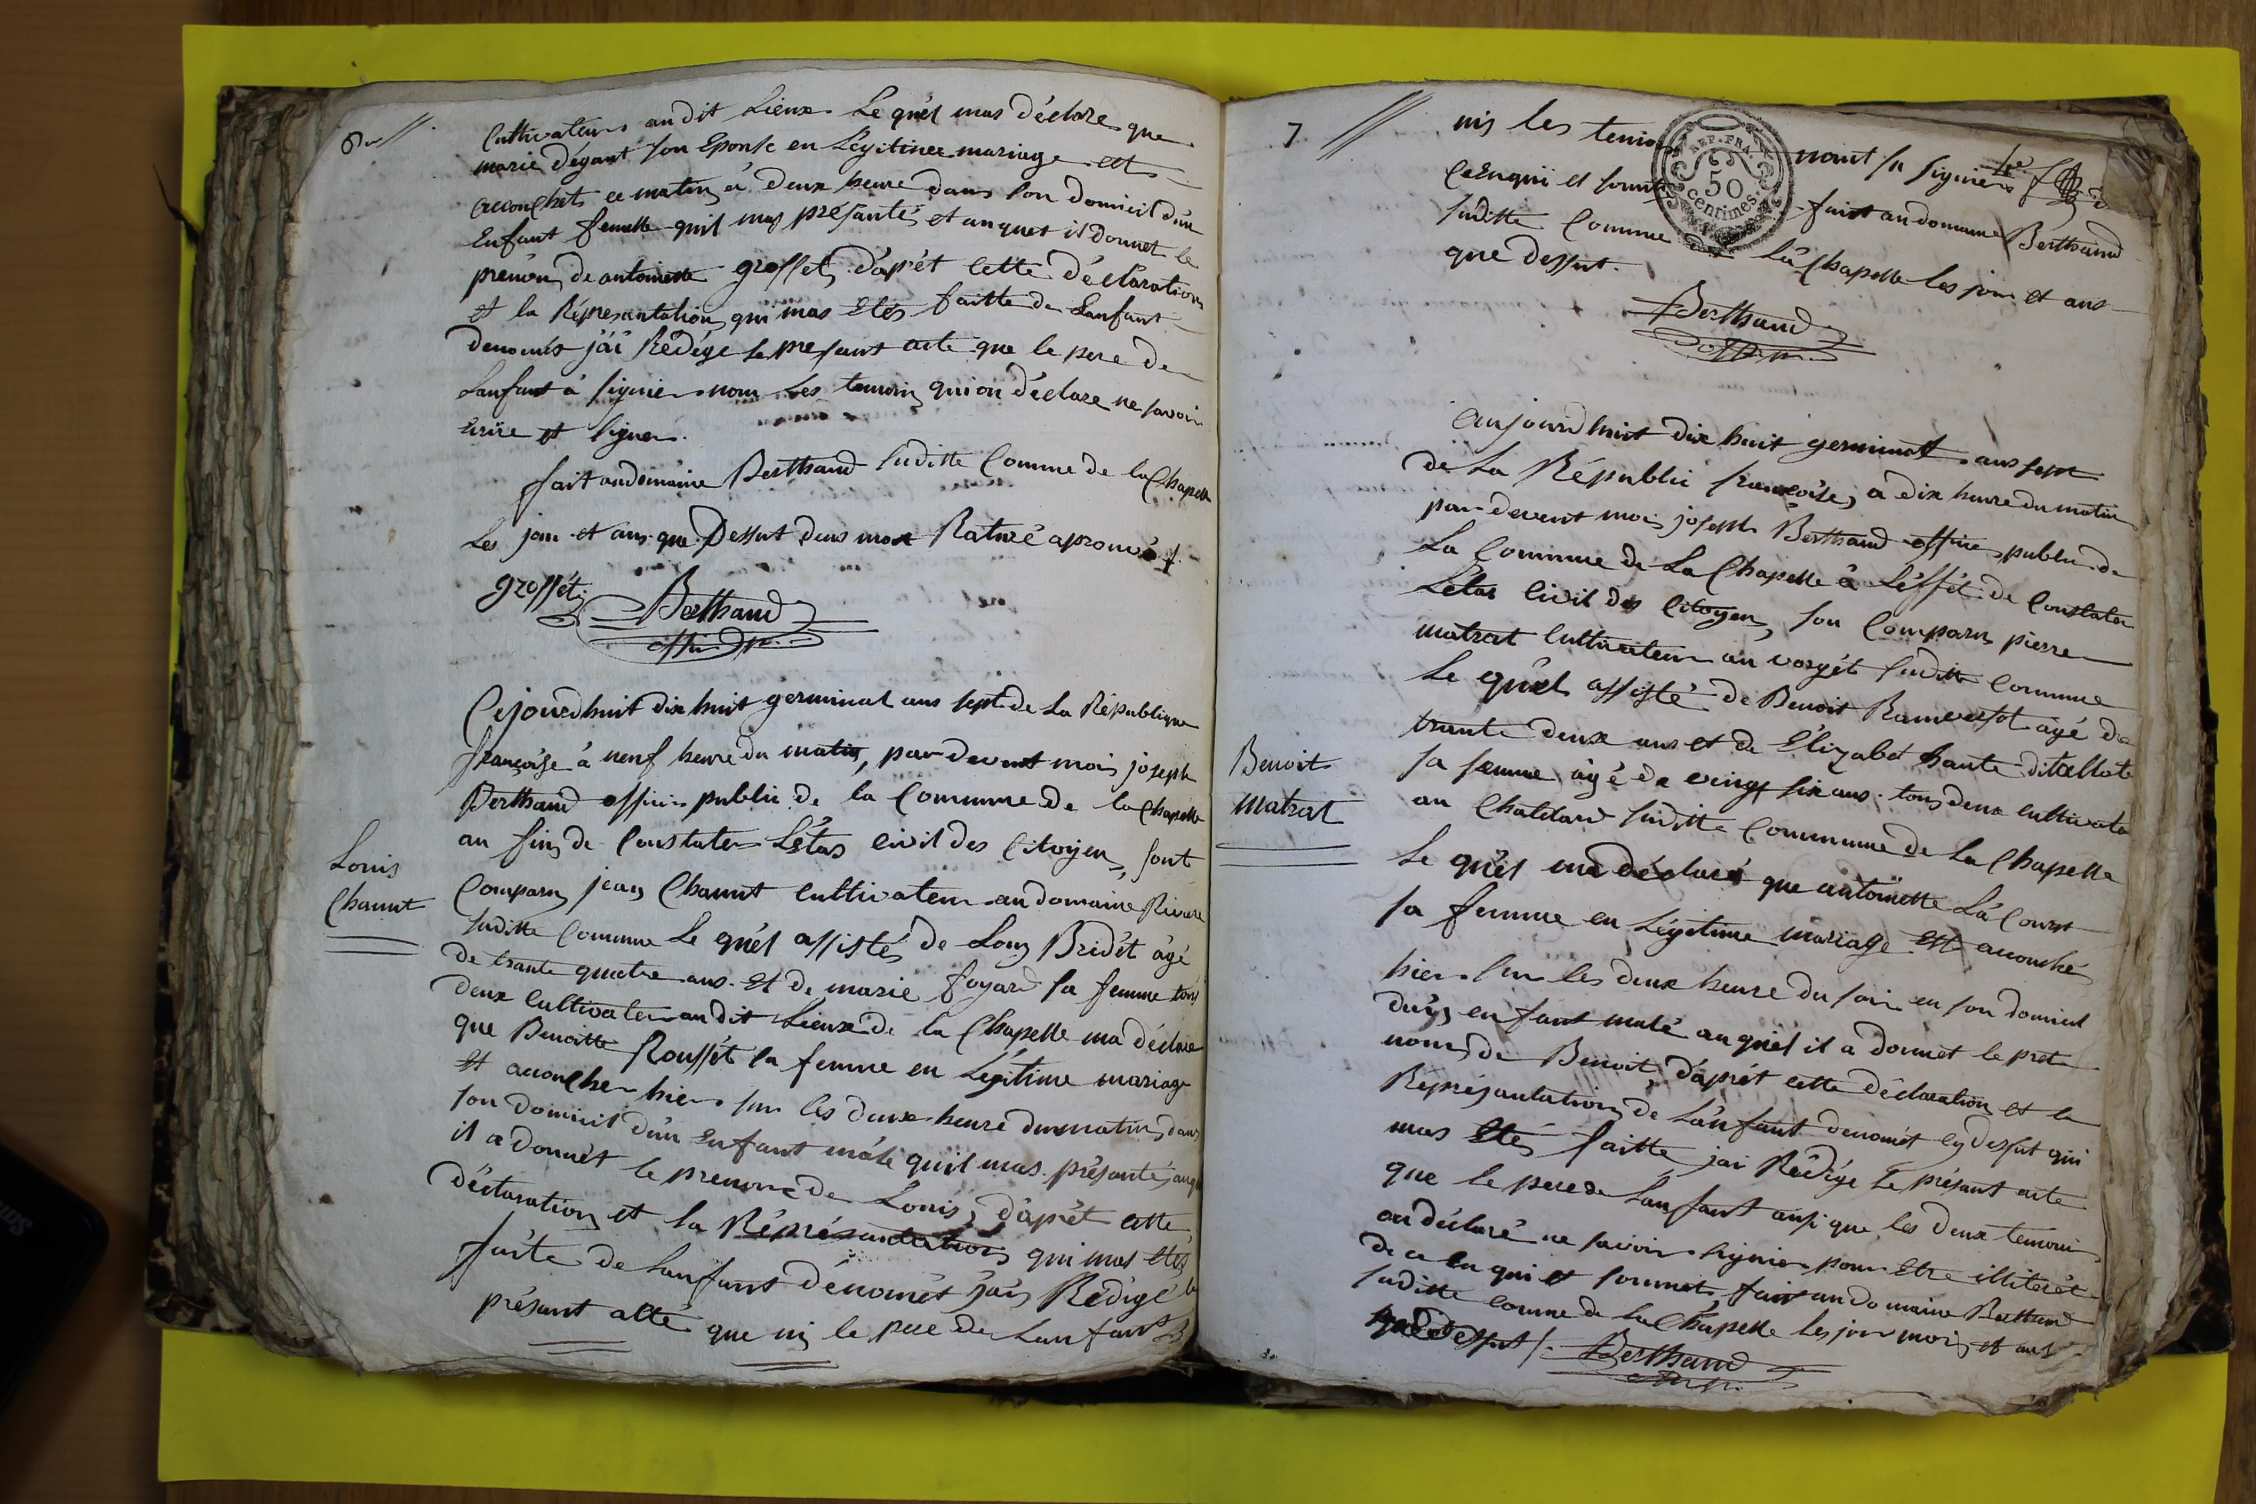 6
Cultivateur au dit Lieux Le quel mas déclare que
marie dégant son Eponse en Legitimee mariage et
accouchets ce matin à deux heure dans son domicil d'un
Enfant femelle quil mas présantés et auquet il donnet le
prenom de antoinette grosset, daprét cette déclaration
et la Réprésantation qui mas Etés faitte de Lanfant
denomés jai Rédége le presant acte que le pere de
Lanfant à signier nom les temoin qui on déclare ne savoir
Ecrire et signer.
fait audomaine Berthaud suditte Comune de la Chapelle
Les jour et ans que Dessut deus mot Raturé aprouvé
grossét Berthaud
offi. p.
Cejourdhuit dix huit germinal ans sept de La République
françoise à neuf heure du matin, par devent mois joseph
Berthaud officier public de la Commune de la Chapelle
au fin de Constater L'étas civil des Citoyen, sont
Louis
Chaunt
Comparu jean Chaunt cultivateur au domaine Riviere
suditte Commune Le quél assistés de Louis Bridét âgé
de trante quatre ans et de marie foyard sa femme tous
deux Cultivateur au dit Lieux de la Chapelle ma déclare
que Benoitte Roussét sa femme en Légitime mariage
et acoucher hier sur les deux heure du matin, dans
son domicil d'un Enfant mâle quil mas présanté, auqu
il a donnét le prenom de Louis, daprét cette
déclaration et la Réprésantation qui mas etés
faite de Lanfant dénomét jais Rédigé le
présant acte que ni le pere de Lanfant
7
nis les temoin nont su signier
ce enquit et fait au domaine Berthaud
suditte Comune de La Chapelle les jour et ans
que dessut.
Berthaud
aujourdhuit dix huit germinal ans sept
de La Républic françoise, a dix heure du matin
par devent mois joseph Berthaud officier public de
La Commune de La Chapelle à L'éffét de Constater
L'étas Civil des Citoyen, son Comparu pierre
matrat Cultivateur au vorgét suditte Commune
Le quel assisté de Benoit âgé de
trante deux ans et de Elizabet
Benoit
matrat
sa femme âgé de vingt six ans tous deux cultivate
au Chatelard suditte Commune de La Chapelle
Le quél ma déclaré que antoinette La Court
sa femme en Légitime mariage Est acouché
hier sur les deux heure du soir en son domicil
d'un enfant mâle au quél il a donnet le pret
nom de Benoit, daprét cette déclaration et la
Répréjantation de Lânfant denomét cy dessut qui
mas Etés faitte jai Rédige Le présant acte
que le pere de Lanfant ausi que les deux temoin
on déclaré ne savoir signier pour etre illiterét
de ce en qui et soumet, fait au domaine Berthaud
suditte comune de La Chapelle Les jour mois et ans
que dessut Berthaud